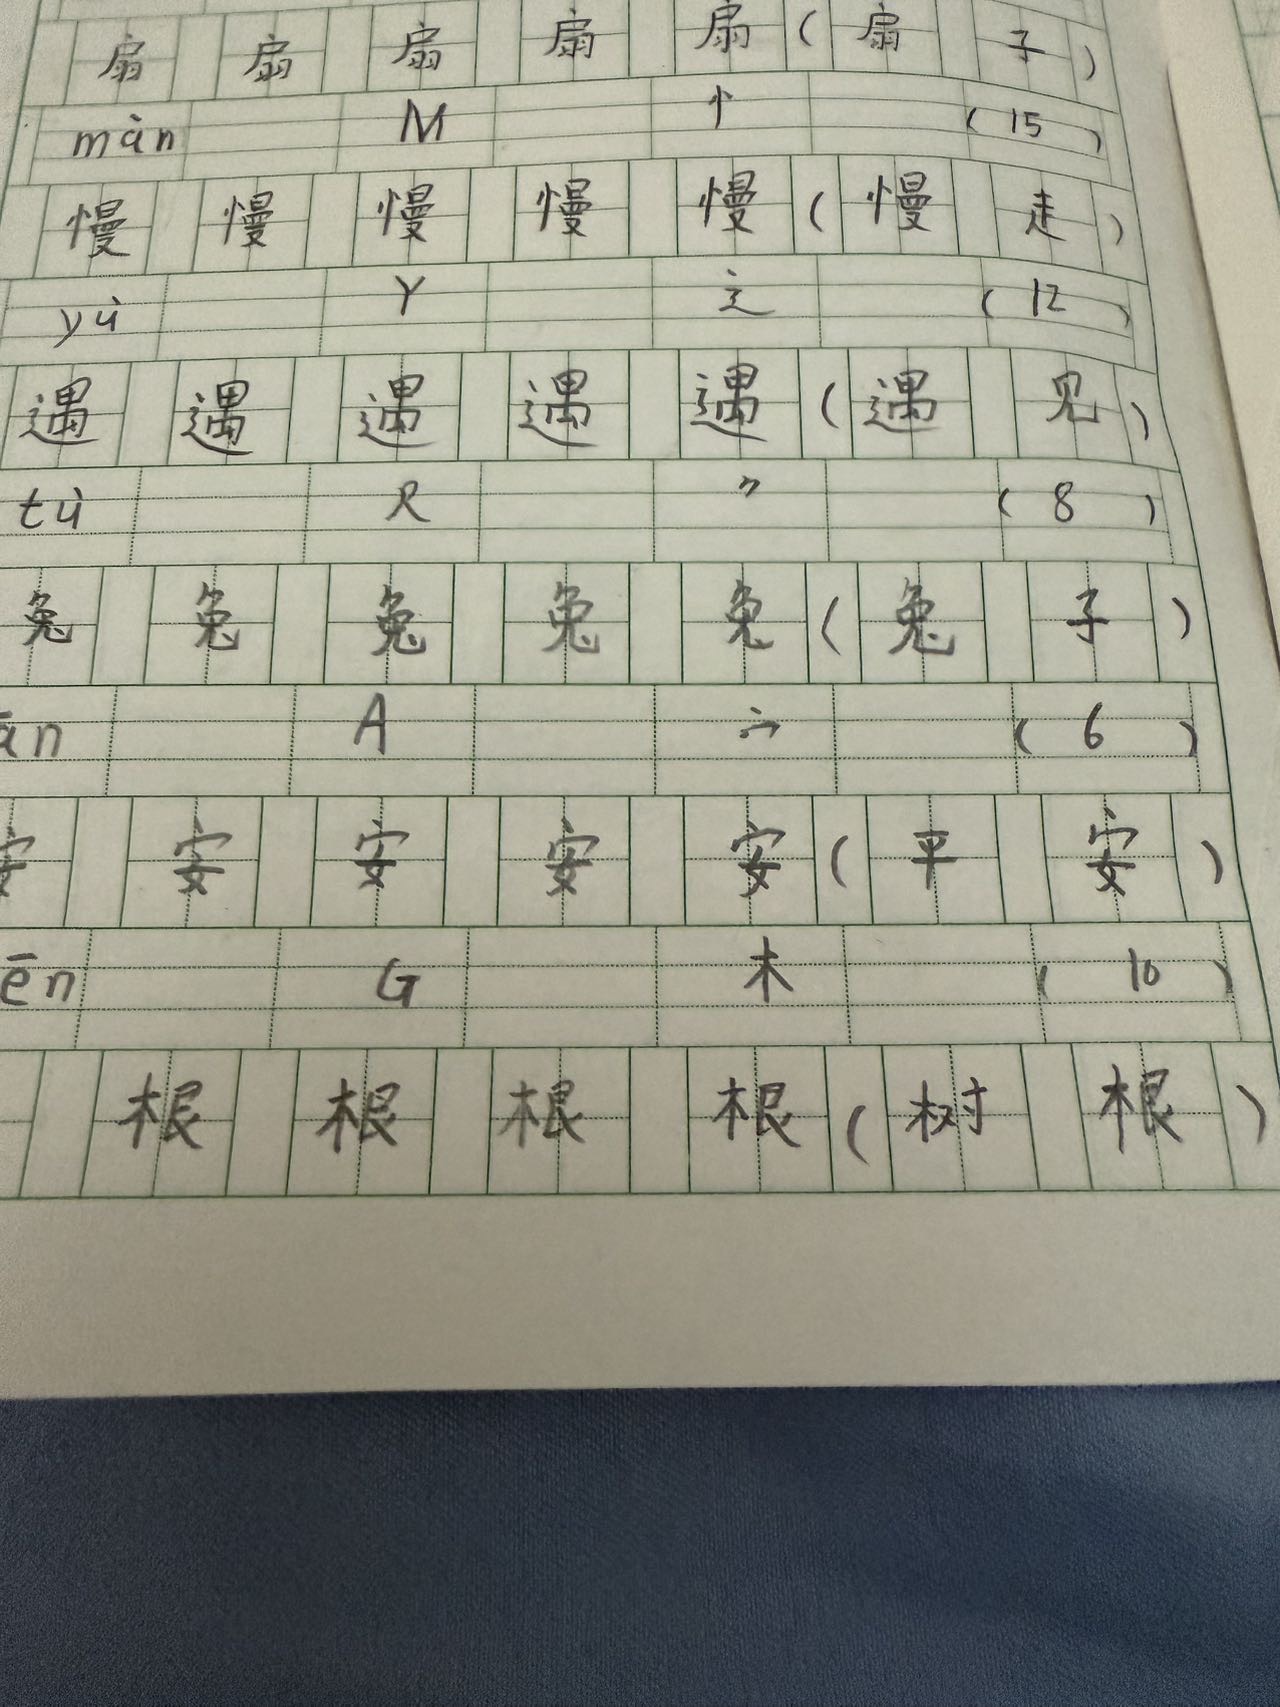 扇 扇 扇 扇 扇 ( 扇 子 )
màn M 忄 ( 15 )
慢 慢 慢 慢 慢 ( 慢 走 )
yù Y 辶 ( 12 )
遇 遇 遇 遇 遇 ( 遇 见 )
tù R ⺈ ( 8 )
兔 兔 兔 兔 兔 ( 兔 子 )
ān A 宀 ( 6 )
安 安 安 安 安 ( 平 安 )
ēn G 木 ( 10 )
根 根 根 根 ( 树 根 )